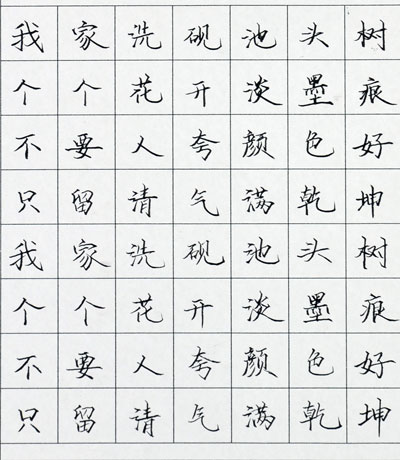 我家洗砚池头树
个个花开淡墨痕
不要人夸颜色好
只留清气满乾坤
我家洗砚池头树
个个花开淡墨痕
不要人夸颜色好
只留清气满乾坤